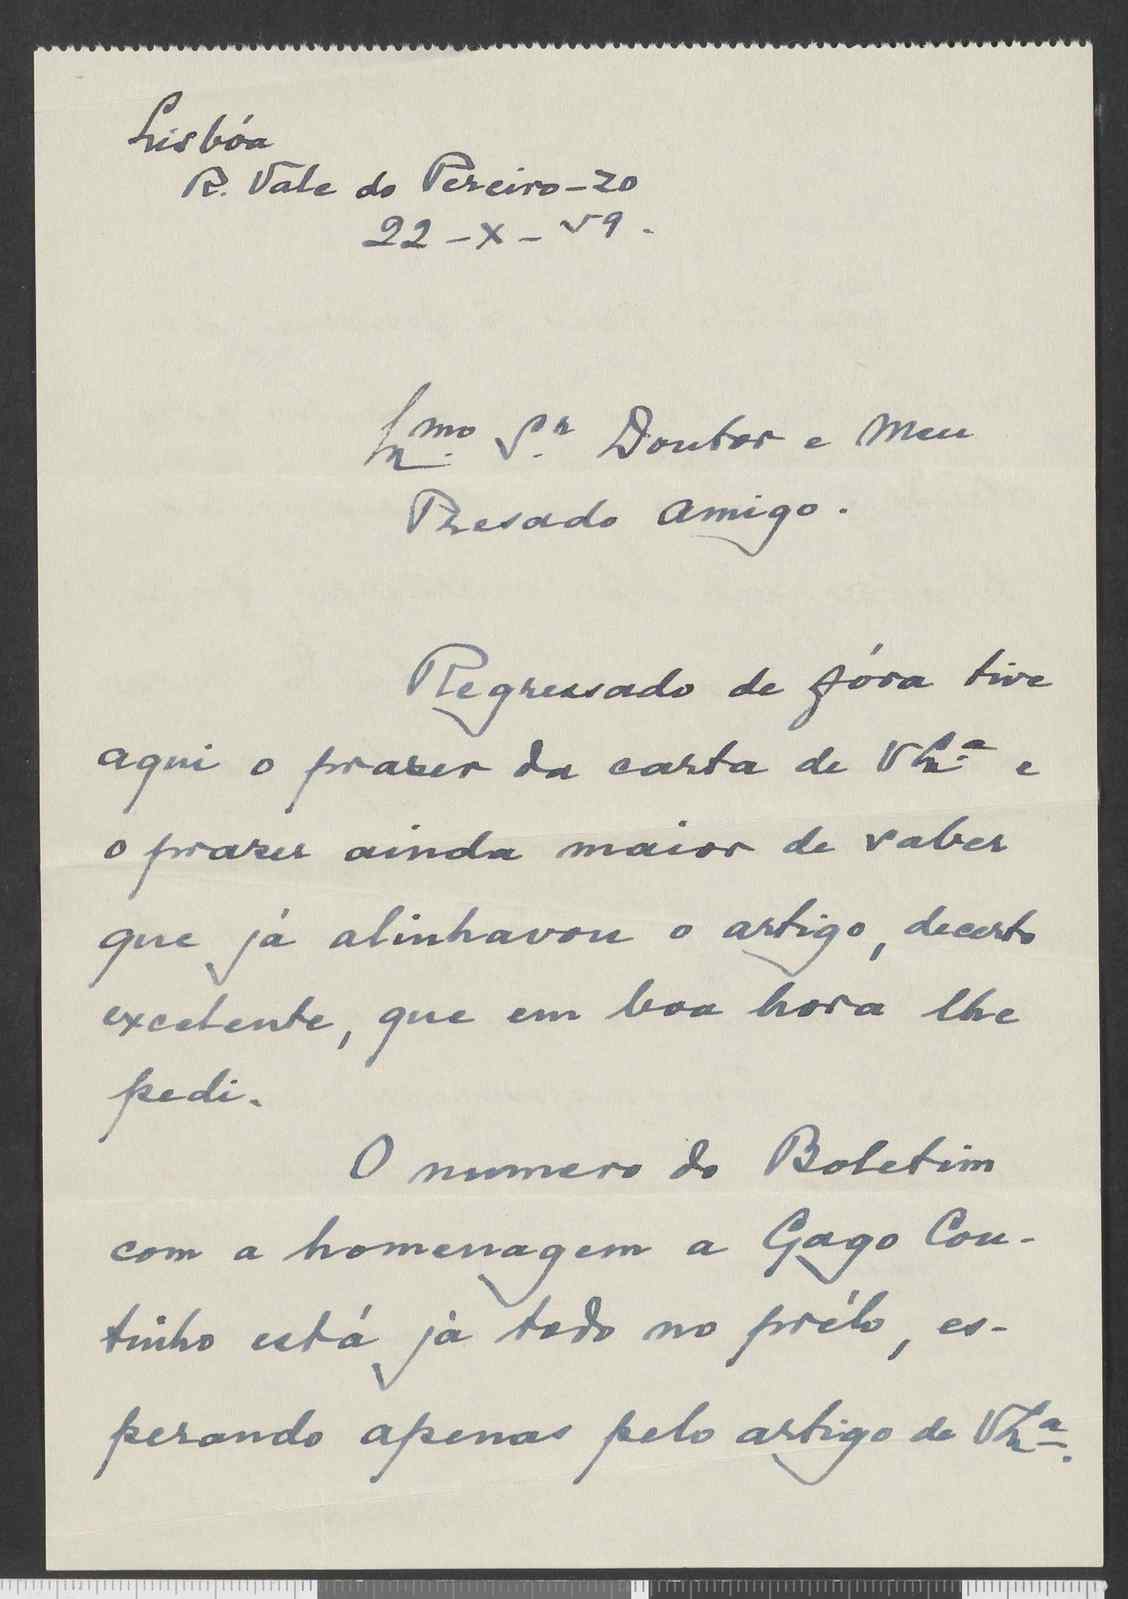 Lisbôa
R. Vale do Pereiro – 20
22 – X – 59.
Exmo. Sr. Doutor e Meu
Presado Amigo.
Regressado de fóra tive
aqui o prazer da carta de V Exª e
o prazer ainda maior de saber
que já alinhavou o artigo, decerto
excelente, que em boa hora lhe
pedi.
O numero do Boletim
com a homenagem a Gago Cou-
tinho está já todo no prélo, es-
perando apenas pelo artigo de V Exª.